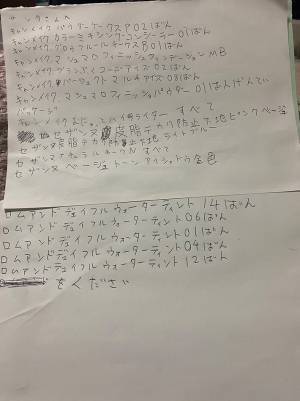 サンタさんへ
キャンメイク パウダーチークス P02ばん
キャンメイク カラーミキシングコンシーラー 01ばん
キャンメイク グロウフルールチークス B01ばん
キャンメイク マシュマロフィニッシュファンデーション MB
キャンメイク プランぷくコーデアイズ 02ばん
キャンメイク パーフェクトマルチアイズ 08ばん
キャンメイク マシュマロフィニッシュパウダー 01ばんげんてい
パッケージ
キャンメイク ハイライター すべて
セザンヌ 皮脂テカリ防止下地 ピンクベージュ
セザンヌ 皮脂テカリ防止下地 ライトブルー
セザンヌ ナチュラルチークN すべて
セザンヌ ベージュトーンアイシャドウ 全色
ロムアンド デュイフルウォーターティント 14ばん
ロムアンド デュイフルウォーターティント 06ばん
ロムアンド デュイフルウォーターティント 01ばん
ロムアンド デュイフルウォーターティント 04ばん
ロムアンド デュイフルウォーターティント 12ばん
をください